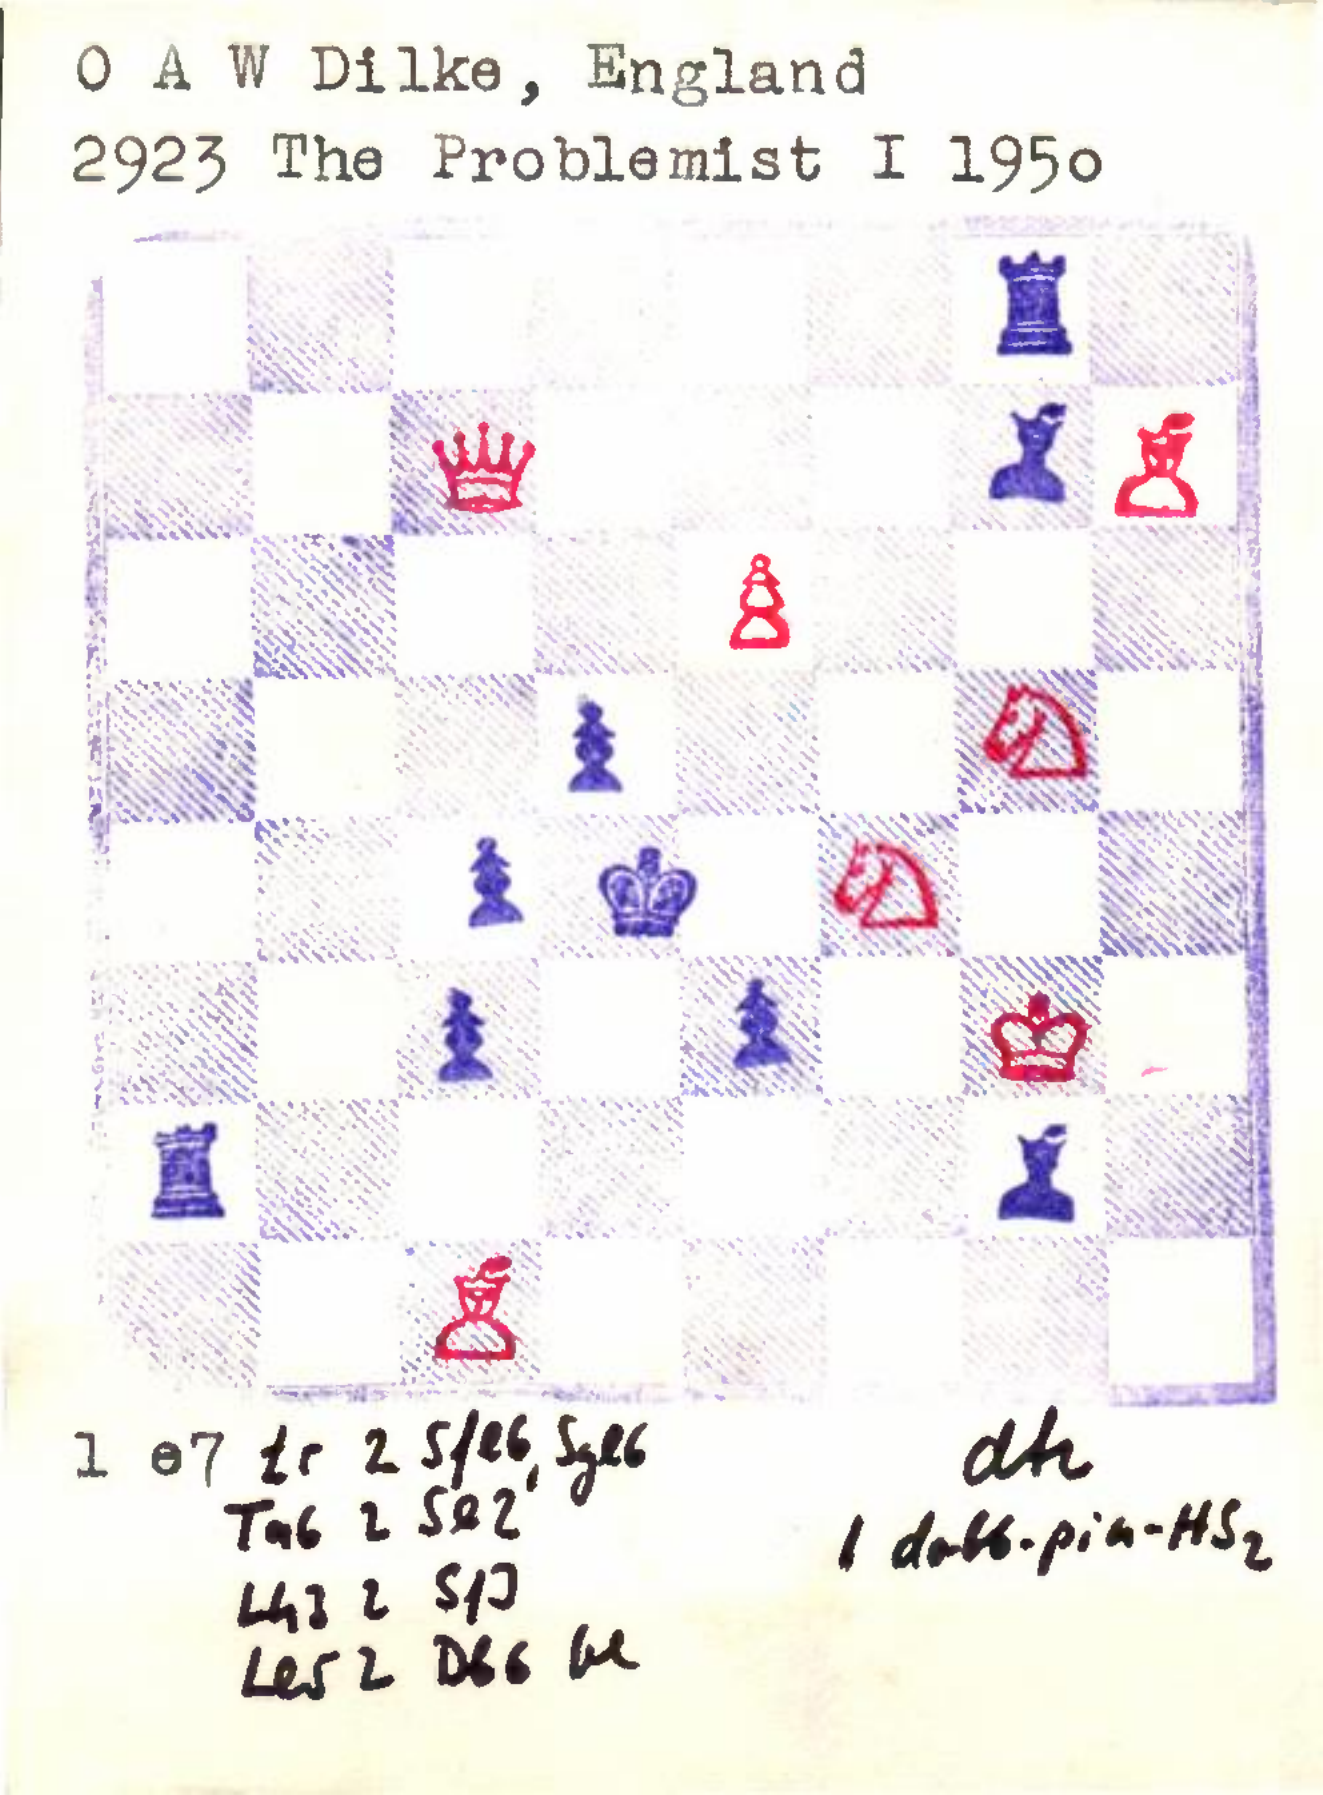 O A W Dilke, England
2923 The Problemist I 195o
1 e7 tr 2 Sfe6, Sge6
Ta6 2 Se2
Lh3 2 Sf3
Le5 2 Db6 bl
1 dobb.pin-HS2